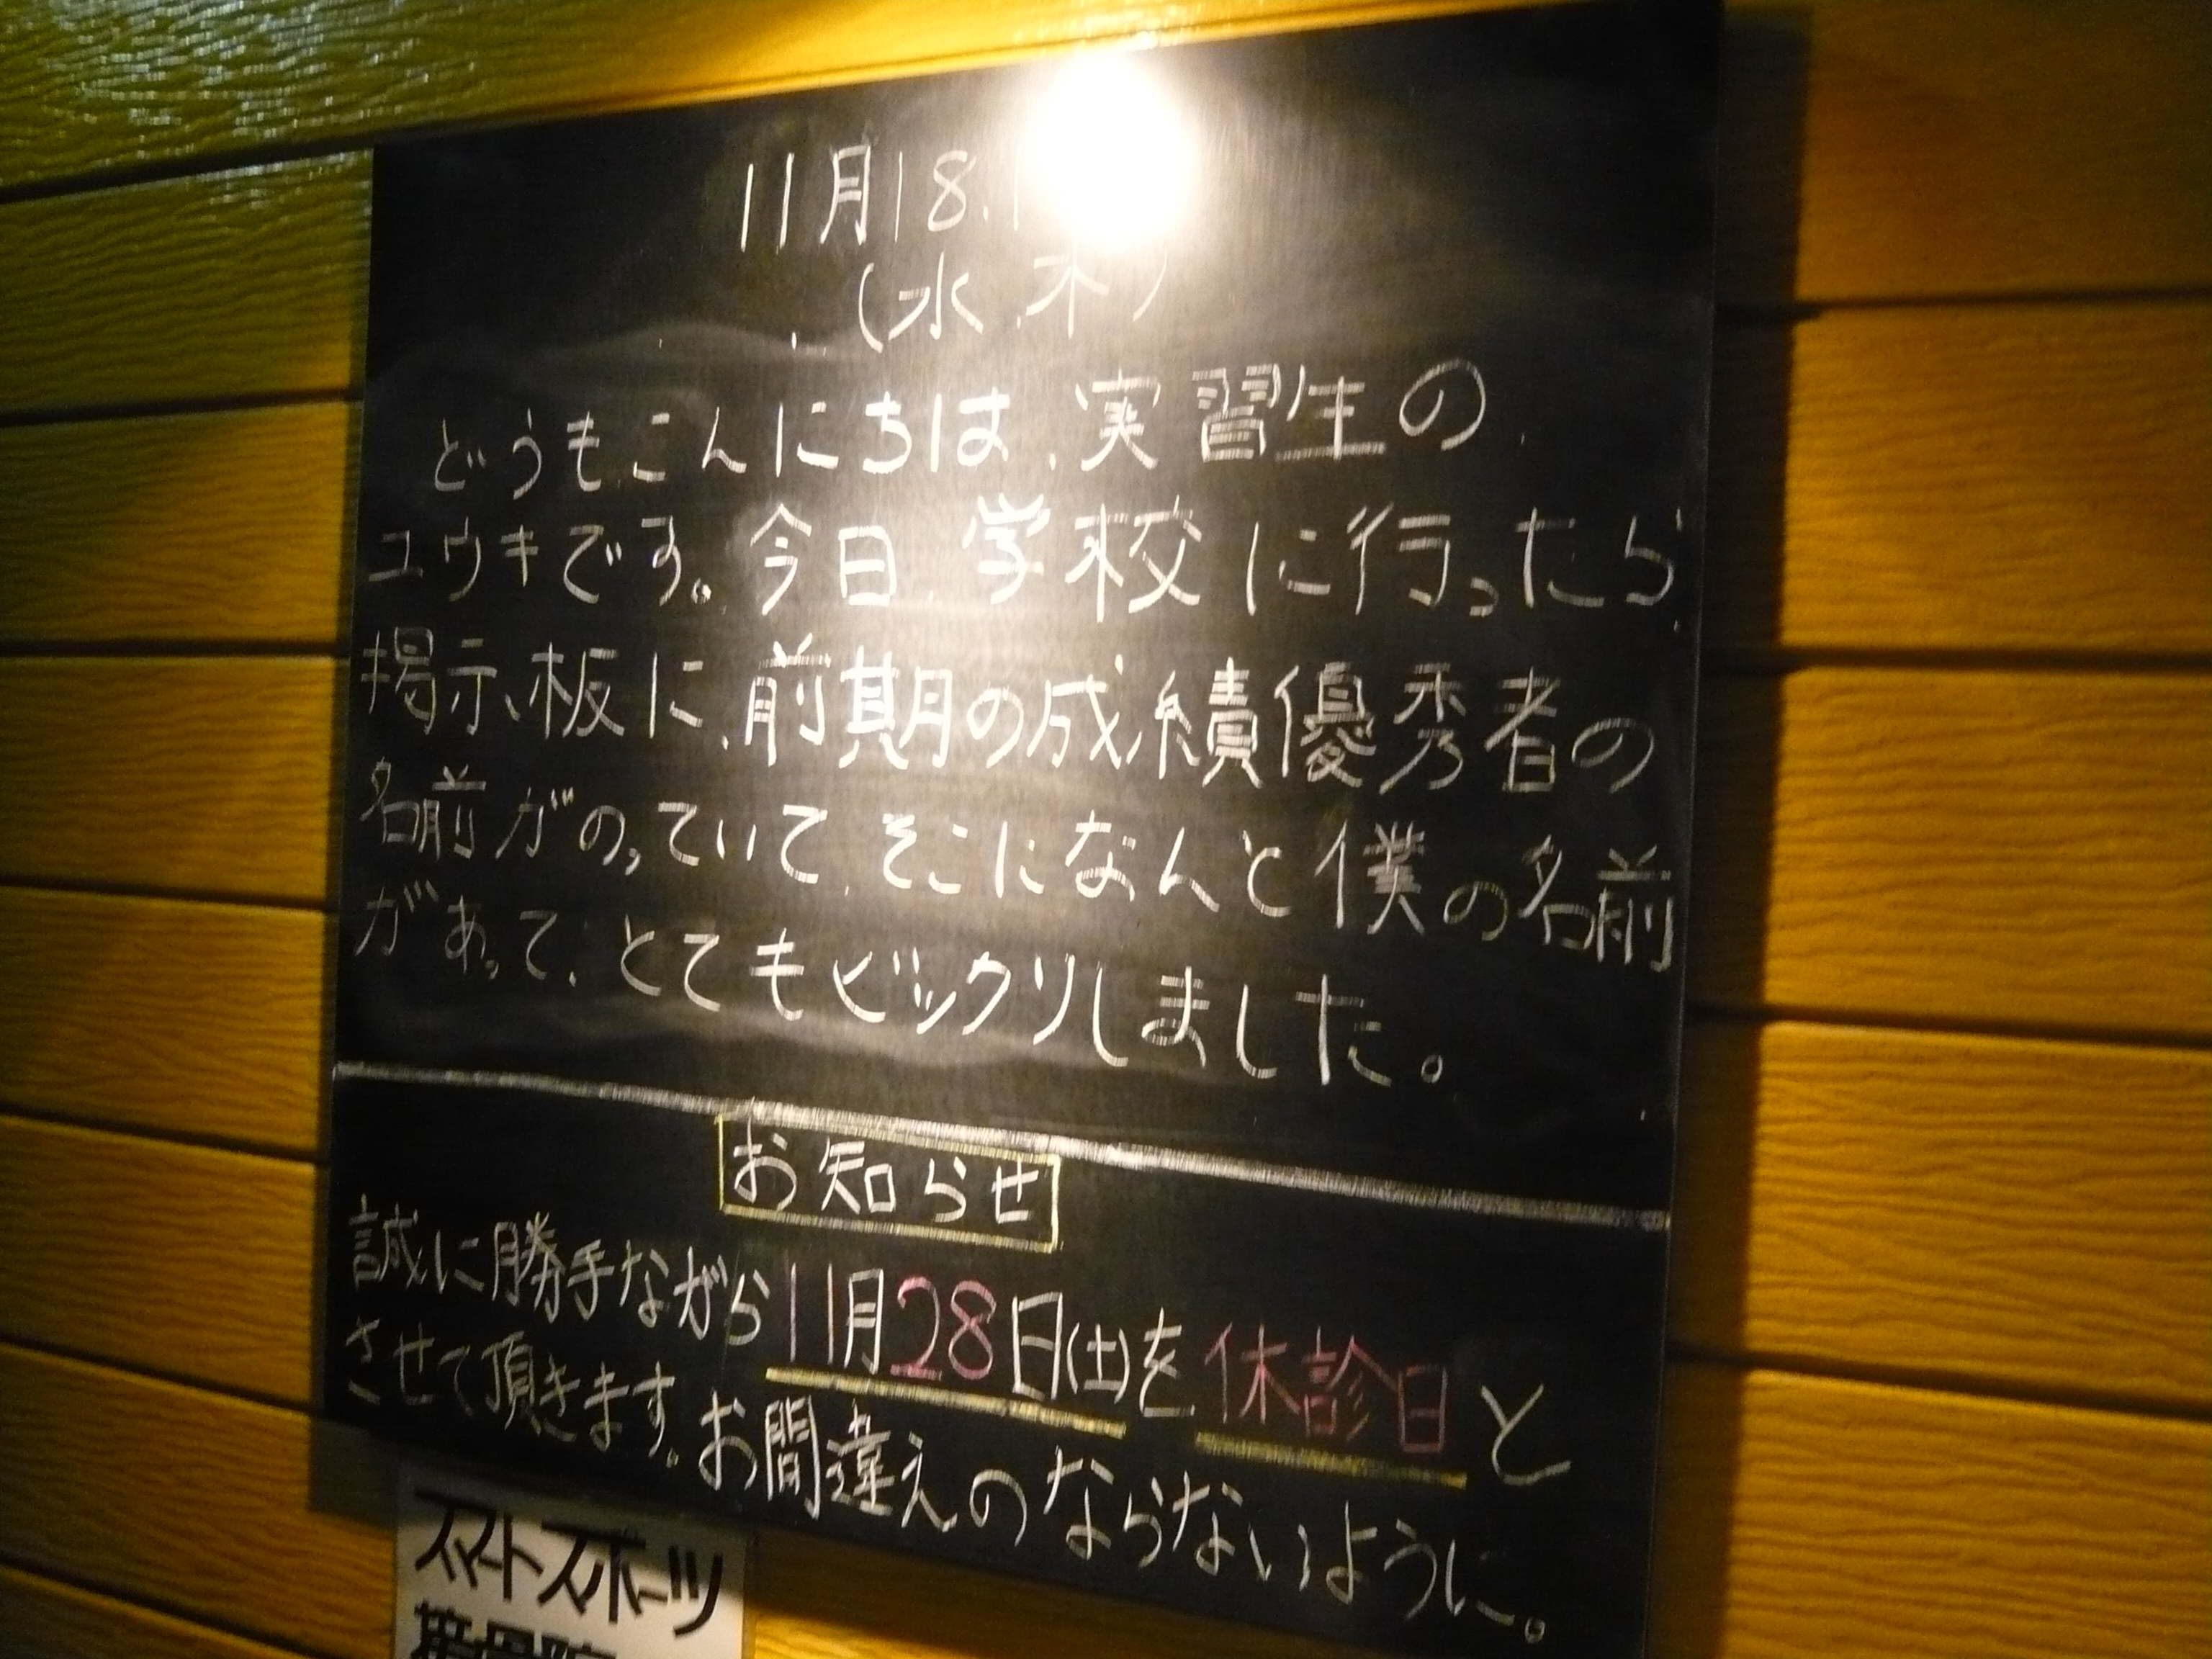 11月18.1
(水.木)
どうもこんにちは、実習生の
ユウキです。今日、学校に行ったら
掲示板に、前期の成績優秀者の
名前がのっていて、そこになんと僕の名前
があって、とてもビックリしました。
お知らせ
誠に勝手ながら11月28日(土)を休診日と
させて頂きます。お間違えのならないように。
スマートスポーツ